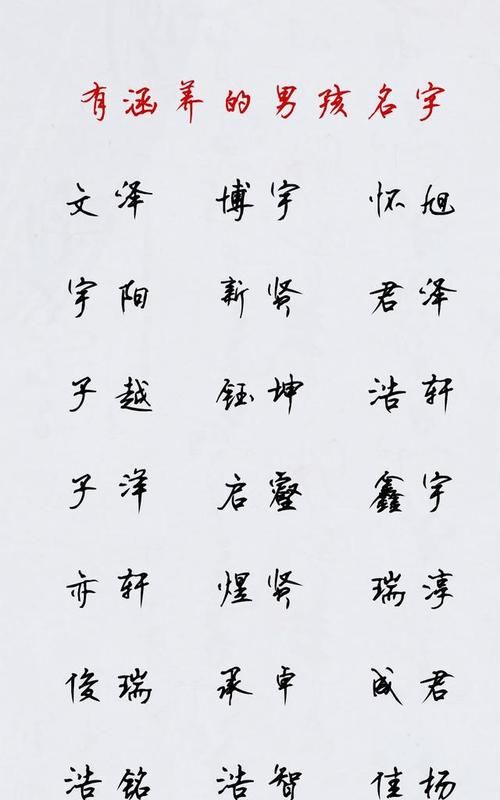 有涵养的男孩名字
文泽 博宇 怀旭
宇阳 新贤 君泽
子越 钰坤 浩轩
子洋 启睿 鑫宇
亦轩 煜贤 瑞淳
俊瑞 承卓 成君
浩铭 浩智 佳杨